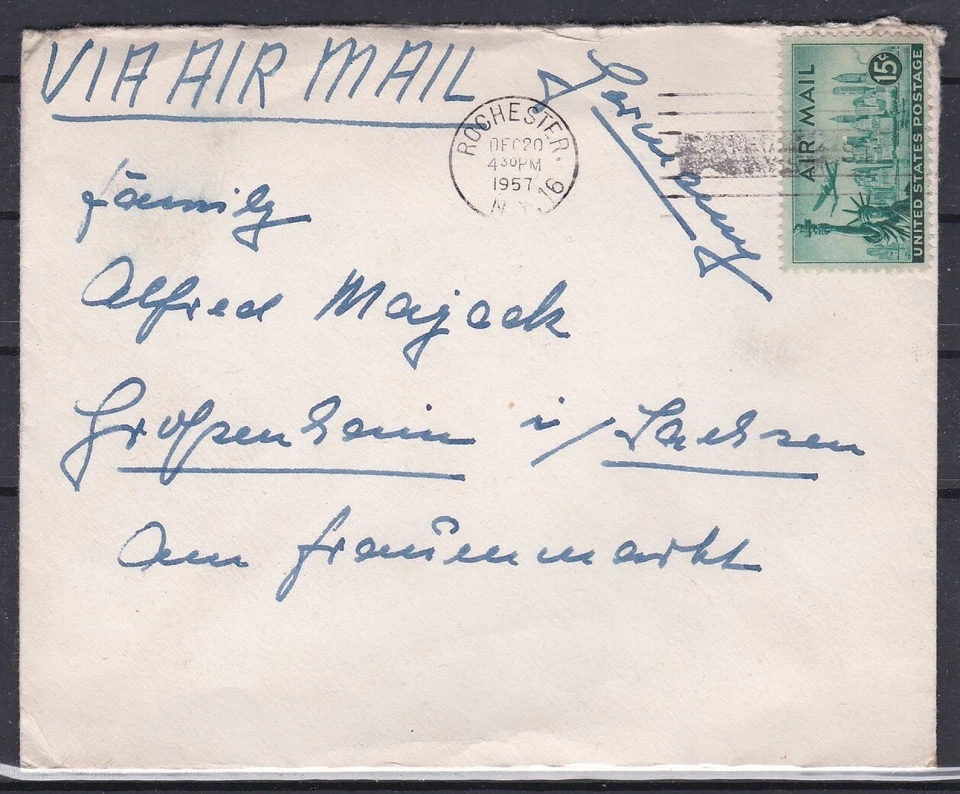 VIA AIR MAIL
Germany
ROCHESTER,
DEC 20
4 30 PM
1957
N.Y. 16
15¢
AIR MAIL
UNITED STATES POSTAGE
Family
Alfred Majack
Großenhain i/ Sachsen
Am Frauenmarkt